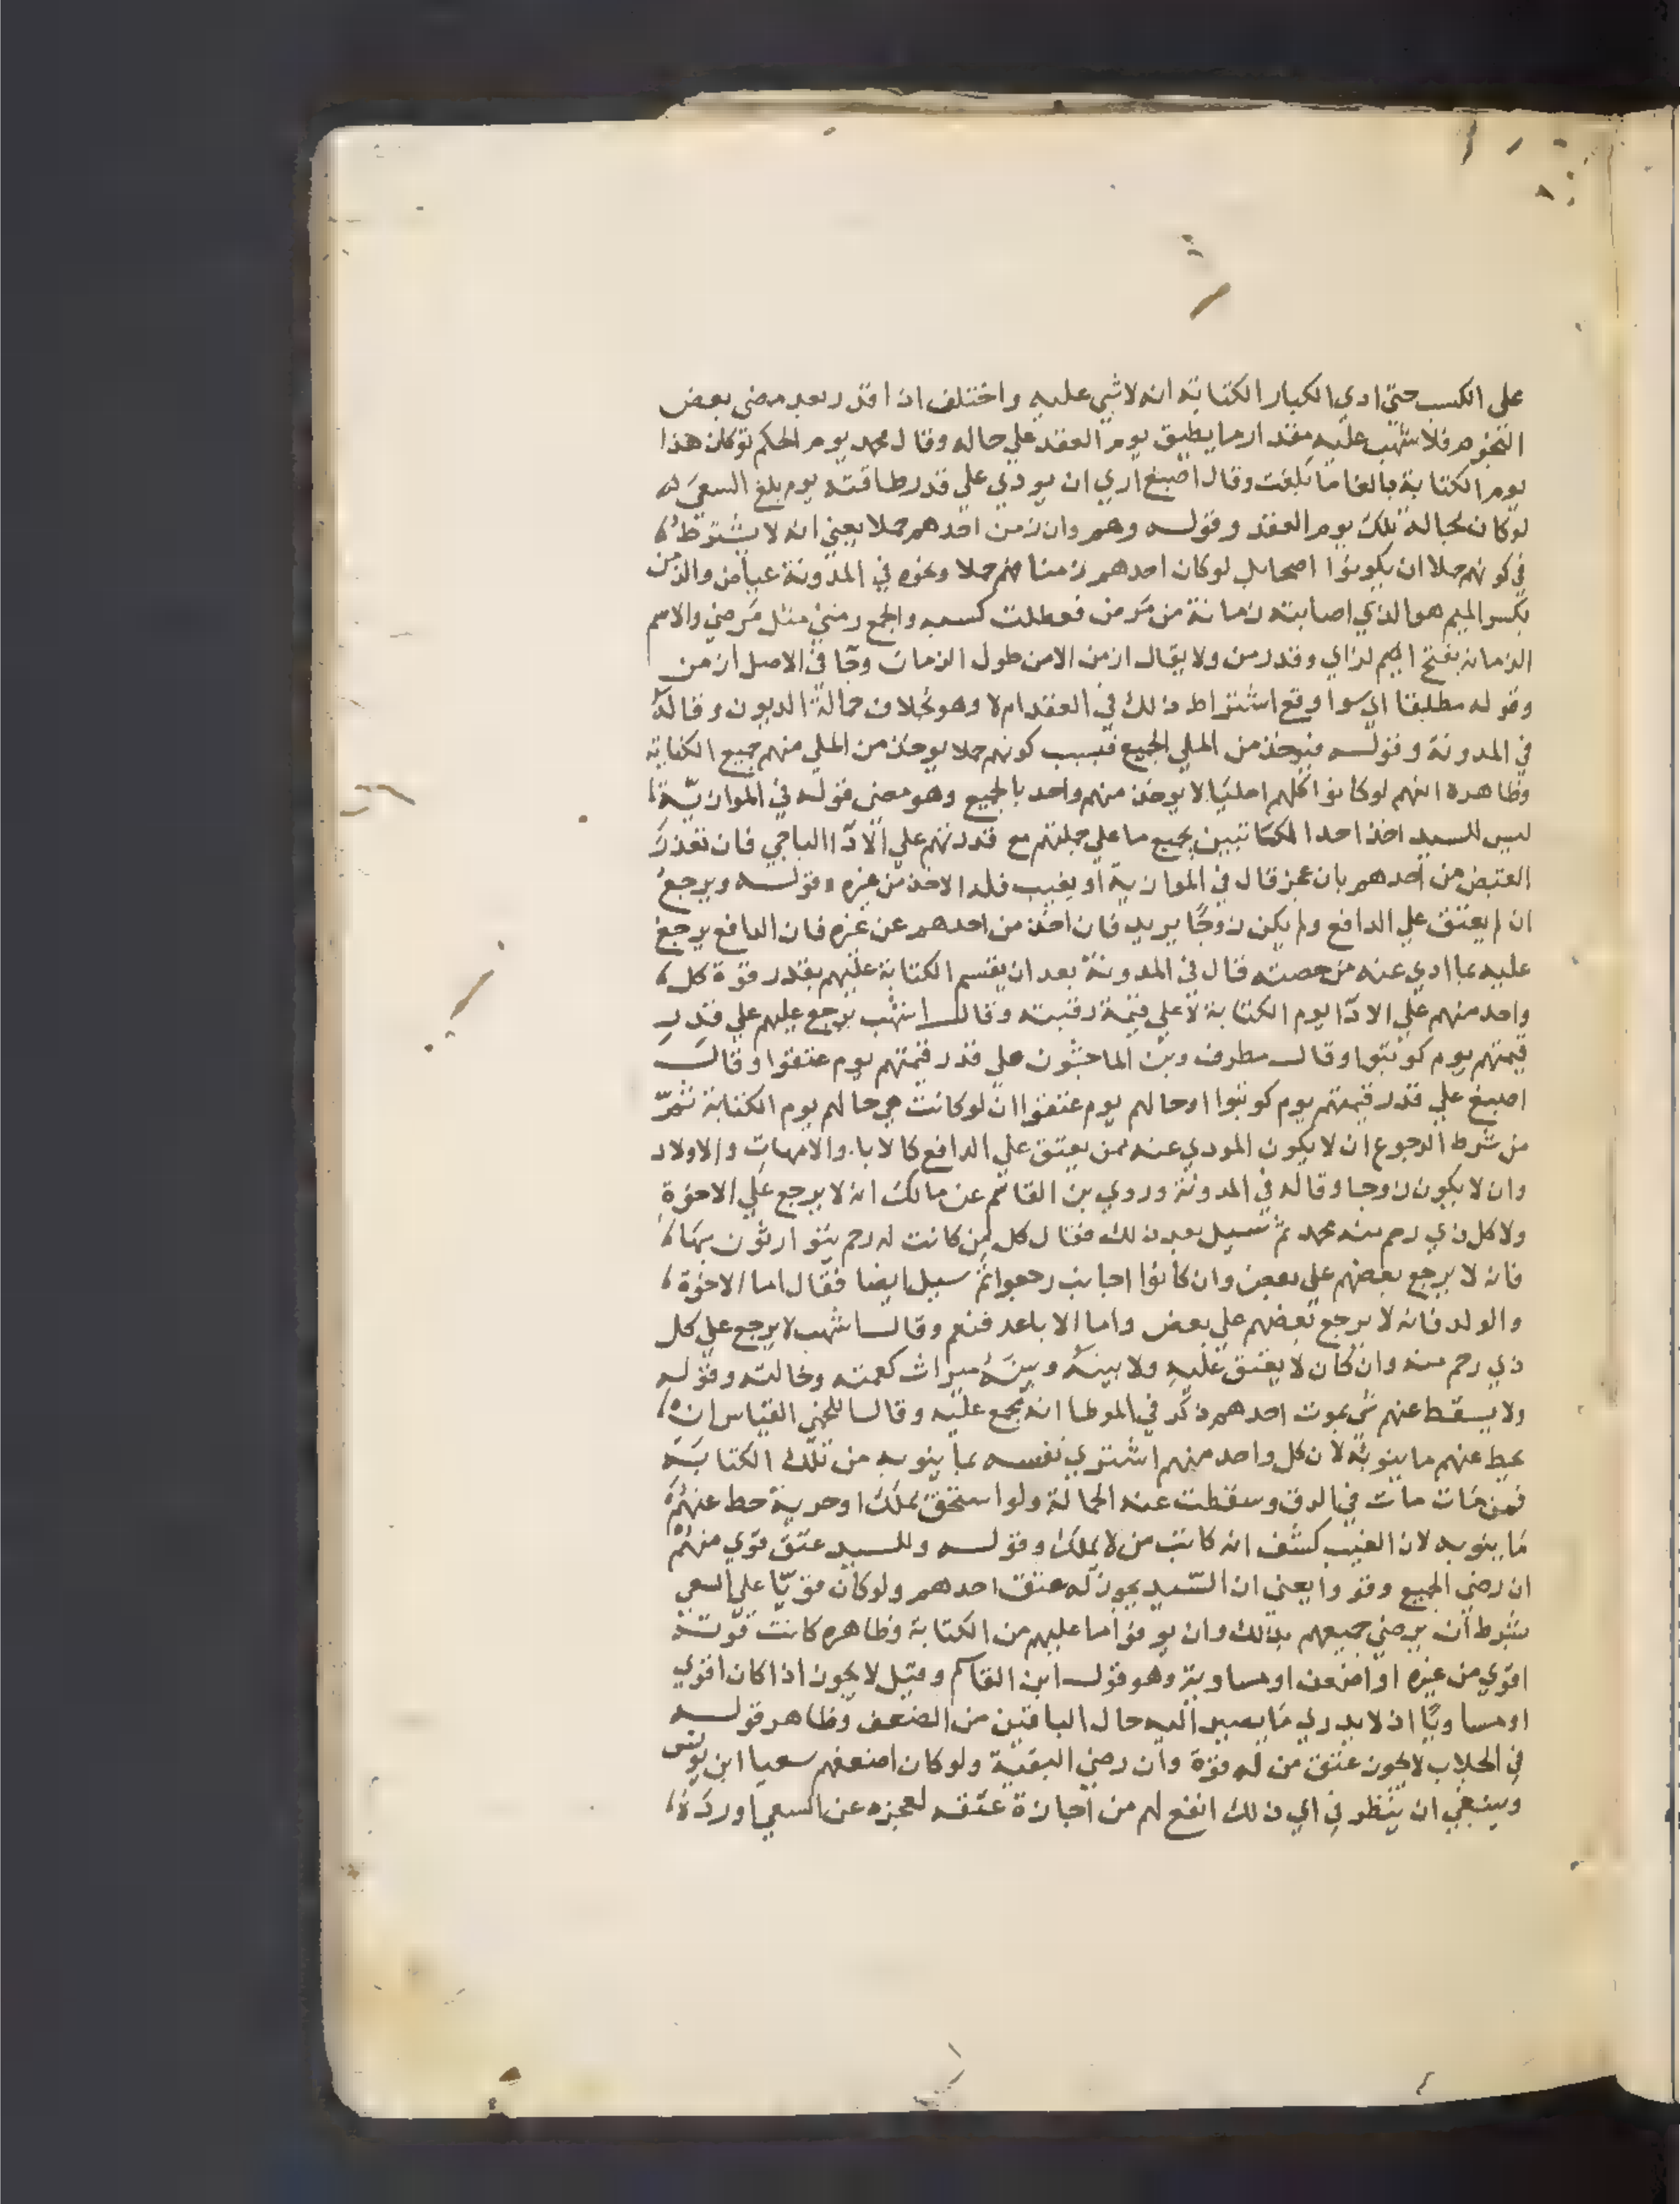 على الكسب حتي ادي الكبار الكتابة انه لا شي عليه واختلف اذا قدر بعد مضي بعض
النجوم فلاشهب عليه مقدار ما يطيق يوم العقد علي حاله وقال محمد يوم الحكم لو كان هذا
يوم الكتابة بالغا ما بلغت وقال اصبغ اري ان يودي علي قدر طاقته يوم بلغ السعي
لو كان بحاله تلك يوم العقد وقولـه وهم وان زمن احدهم حملا يعني انه لا يشترط
في كونهم حملا ان يكونوا اصحا بل لو كان احدهم زمنا فهم حملا ونحوه في المدونة عياض والزمن
بكسر الميم هو الذي اصابته زمانة من مرض فعطلت كسبه والجمع زمني مثل مرضي والاسم
الزمانه بفتح الزاي وقد زمن ولا يقال ازمن الا من طول الزمان وجا في الاصل ازمن
وقوله مطلقا اي سوا وقع اشتراط ذلك في العقد ام لا وهو بخلاف حمالة الديون وقاله
في المدونة وقولـه فيوخذ من الملي الجميع فبسبب كونهم حملا يوخذ من الملي منهم جميع الكتابة
وظاهره انهم لو كانوا كلهم امليا لا يوخذ منهم واحد بالجميع وهو معني قوله في الموازية
ليس للسيد اخذ احد المكاتبين بجميع ما علي جملتهم مع قدرتهم علي الادا الباجي فان تعذر
القبض من احدهم بان عجز قال في الموازية او يغيب فله الاخذ من غيره وقولـه ويرجع
ان لم يعتق علي الدافع ولم يكن زوجا يريد فان اخذ من احدهم عن غيره فان الدافع يرجع
عليه بما ادي عنه من حصته قال في المدونة بعد ان يقسم الكتابة عليهم بقدر قوة كل
واحد منهم علي الادا يوم الكتابة لا علي قيمة رقبته وقال اشهب يرجع عليهم علي قدر
قيمتهم يوم كوتبوا وقال مطرف وبن الماجشون علي قدر قيمتهم يوم عتقوا وقال
اصبغ علي قدر قيمتهم يوم كوتبوا او حالهم يوم عتقوا ان لو كانت هي حالهم يوم الكتابة ثم
من شرط الرجوع ان لا يكون المودي عنه ممن يعتق علي الدافع كالابا والامهات والاولاد
وان لا يكون زوجا وقاله في المدونة وروي بن القاسم عن مالك انه لا يرجع علي الاخوة
ولا كل ذي رحم منه محمد ثم سيل بعد ذلك فقال كل من كانت له رحم يتوارثون بها
فانه لا يرجع بعضهم علي بعض وان كانوا اجانب رجعوا ثم سيل ايضا فقال اما الاخوة
والولد فانه لا يرجع بعضهم علي بعض واما الاباعد فنعم وقال اشهب لا يرجع علي كل
ذي رحم منه وان كان لا يعتق عليه ولا بينه وبينه ميراث كعمته وخالته وقولـه
ولا يسقط عنهم شي بموت احدهم ذكر في الموطا انه مجمع عليه وقال اللخمي القياس ان
يحط عنهم ما ينوبه لان كل واحد منهم اشتري نفسه بما ينوبه من تلك الكتابة
فمن مات مات في الرق وسقطت عنه الحمالة ولو استحق بملك او حرية حط عنهم
ما ينوبه لان الغيب كشف انه كاتب من لا يملك وقولـه وللسيد عتق قوي منهم
ان رضي الجميع وقووا يعني ان السيد يجوز له عتق احدهم ولو كان قويا علي السعي
بشرط ان يرضي جميعهم بذلك وان يوفوا ما عليهم من الكتابة وظاهره كانت قوته
اقوي من غيره او اضعف او مساوية وهو قول ابن القاسم وقيل لا يجوز اذا كان اقوي
او مساويا اذ لا يدري ما يصير اليه حال الباقين من الضعف وظاهر قولـه
في الجلاب لا يجوز عتق من له قوة وان رضي البقية ولو كان اضعفهم سعيا ابن يونس
وينبغي ان ينظر في اي ذلك انفع لهم من اجازة عتقه لعجزه عن السعي او رده